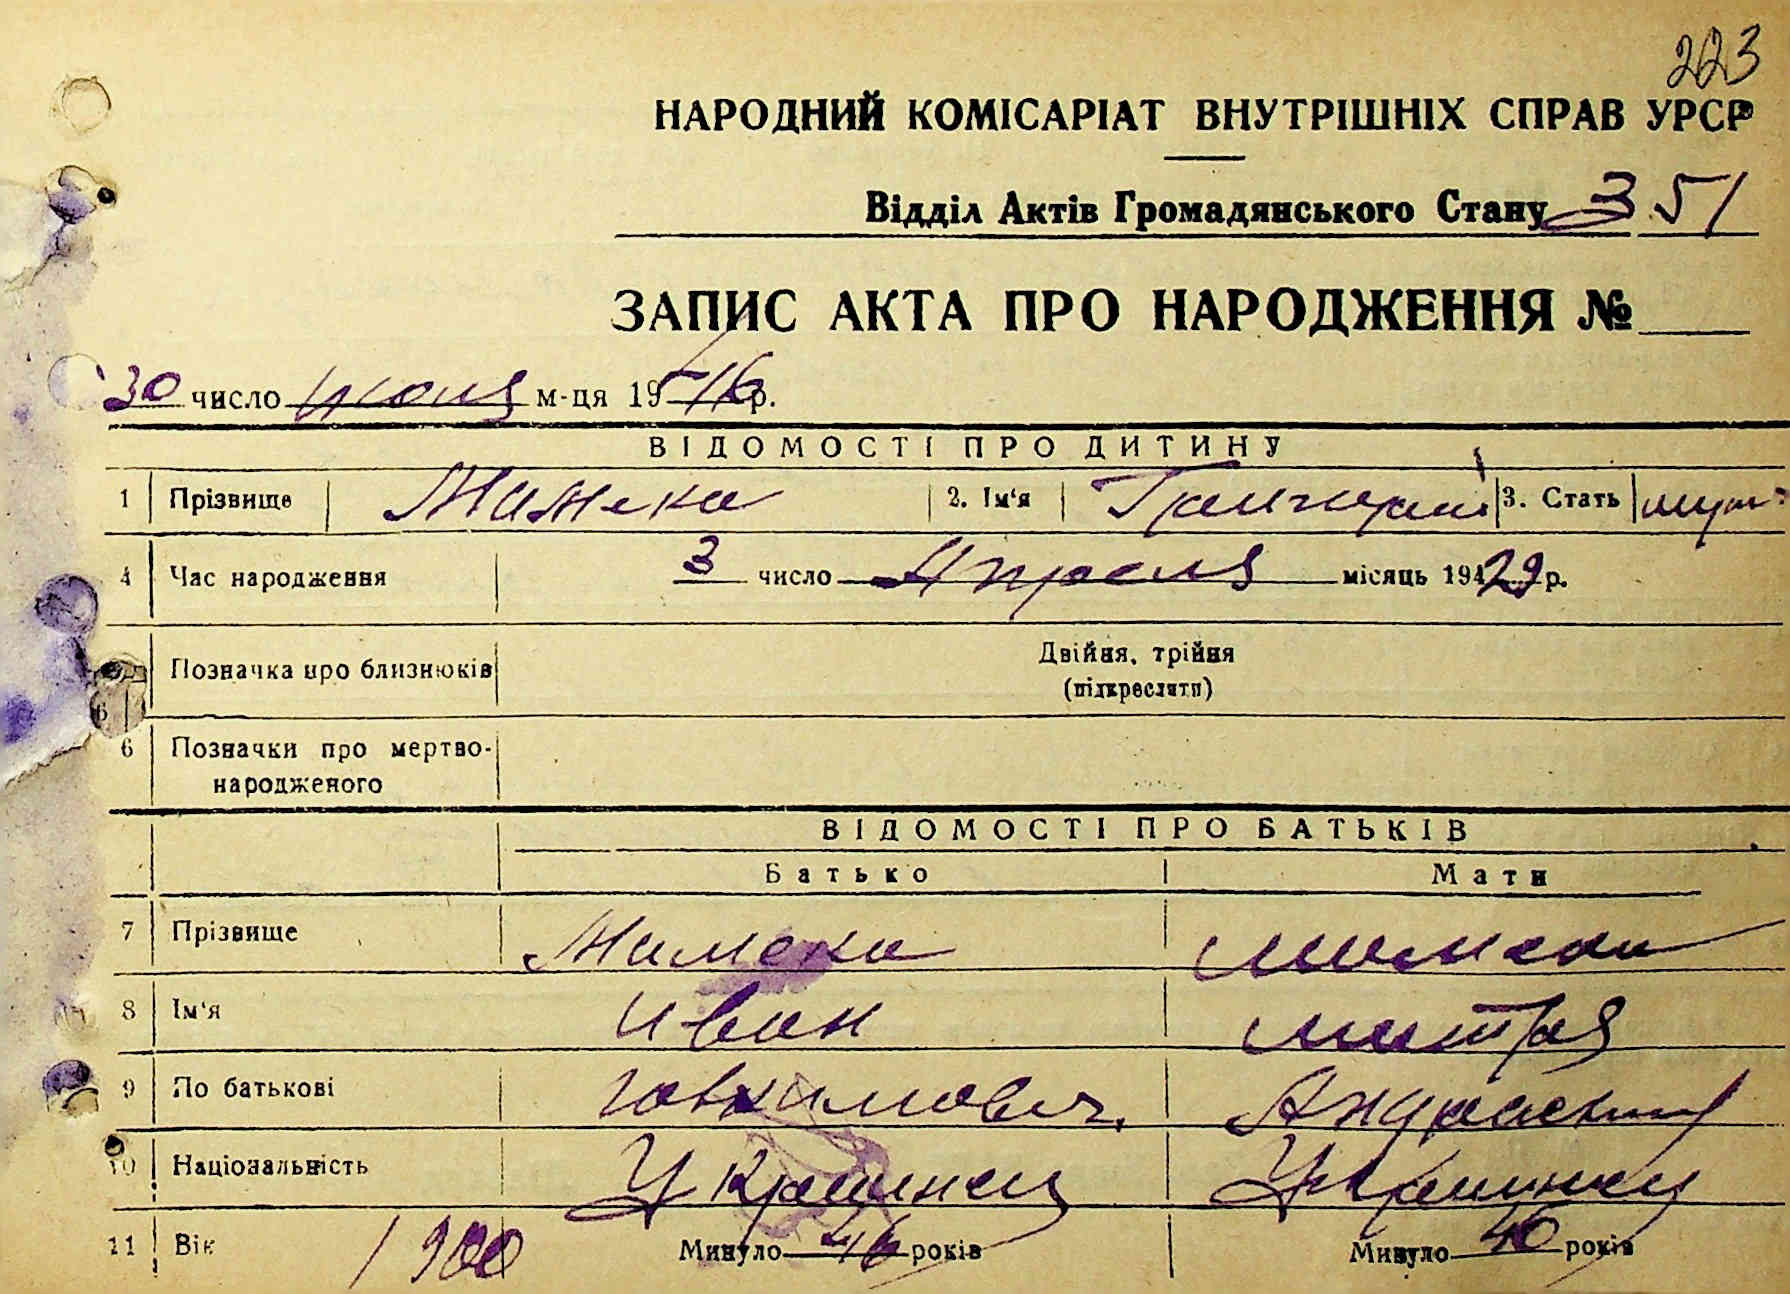 223
НАРОДНИЙ КОМІСАРІАТ ВНУТРІШНІХ СПРАВ УРСР
Відділ Актів Громадянського Стану 351
ЗАПИС АКТА ПРО НАРОДЖЕННЯ №
30 число июля м-ця 1946 р.
ВІДОМОСТІ ПРО ДИТИНУ
1 Прізвище 2. Ім‘я Григорий 3. Стать муж
4 Час народження 3 число Апреля місяць 1929 р.
Позначка про близнюків Двійня, трійня
(підкреслити)
6 Позначки про мертво-
народженого
ВІДОМОСТІ ПРО БАТЬКІВ
Батько Мати
7 Прізвище
8 Ім‘я Иван
9 По батькові
10 Національність Украинец Украинец
11 Вік 1900 Минуло 46 років Минуло 40 років